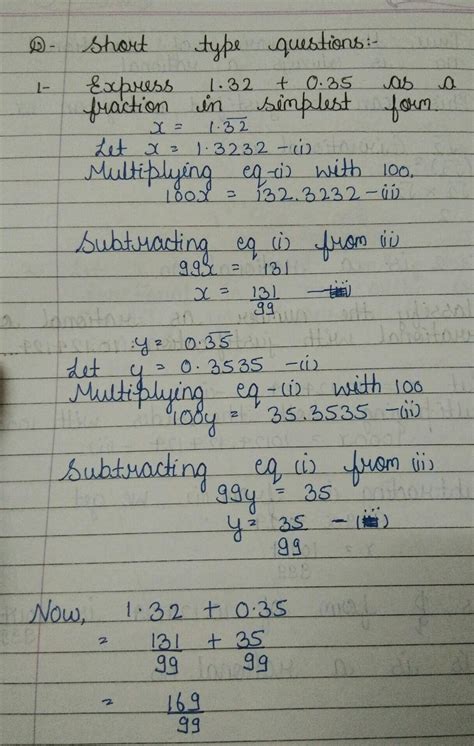 Q- Short type questions:-
1- Express 1.32 + 0.35 as a
fraction in simplest form.
x = 1.3̅2̅
Let x = 1.3232 -(i)
Multiplying eq-(i) with 100.
100x = 132.3232 -(ii)
Subtracting eq (i) from (ii)
99x = 131
x = 131/99 -(iii)
y = 0.3̅5̅
Let y = 0.3535 -(i)
Multiplying eq-(i) with 100
100y = 35.3535 -(ii)
Subtracting eq (i) from (ii)
99y = 35
y = 35/99 -(iii)
Now, 1.32 + 0.35
= 131/99 + 35/99
= 169/99